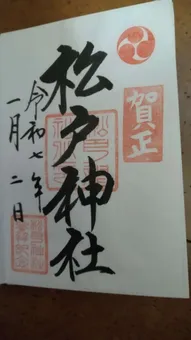 賀正
松戸神社
令和七年
一月二日